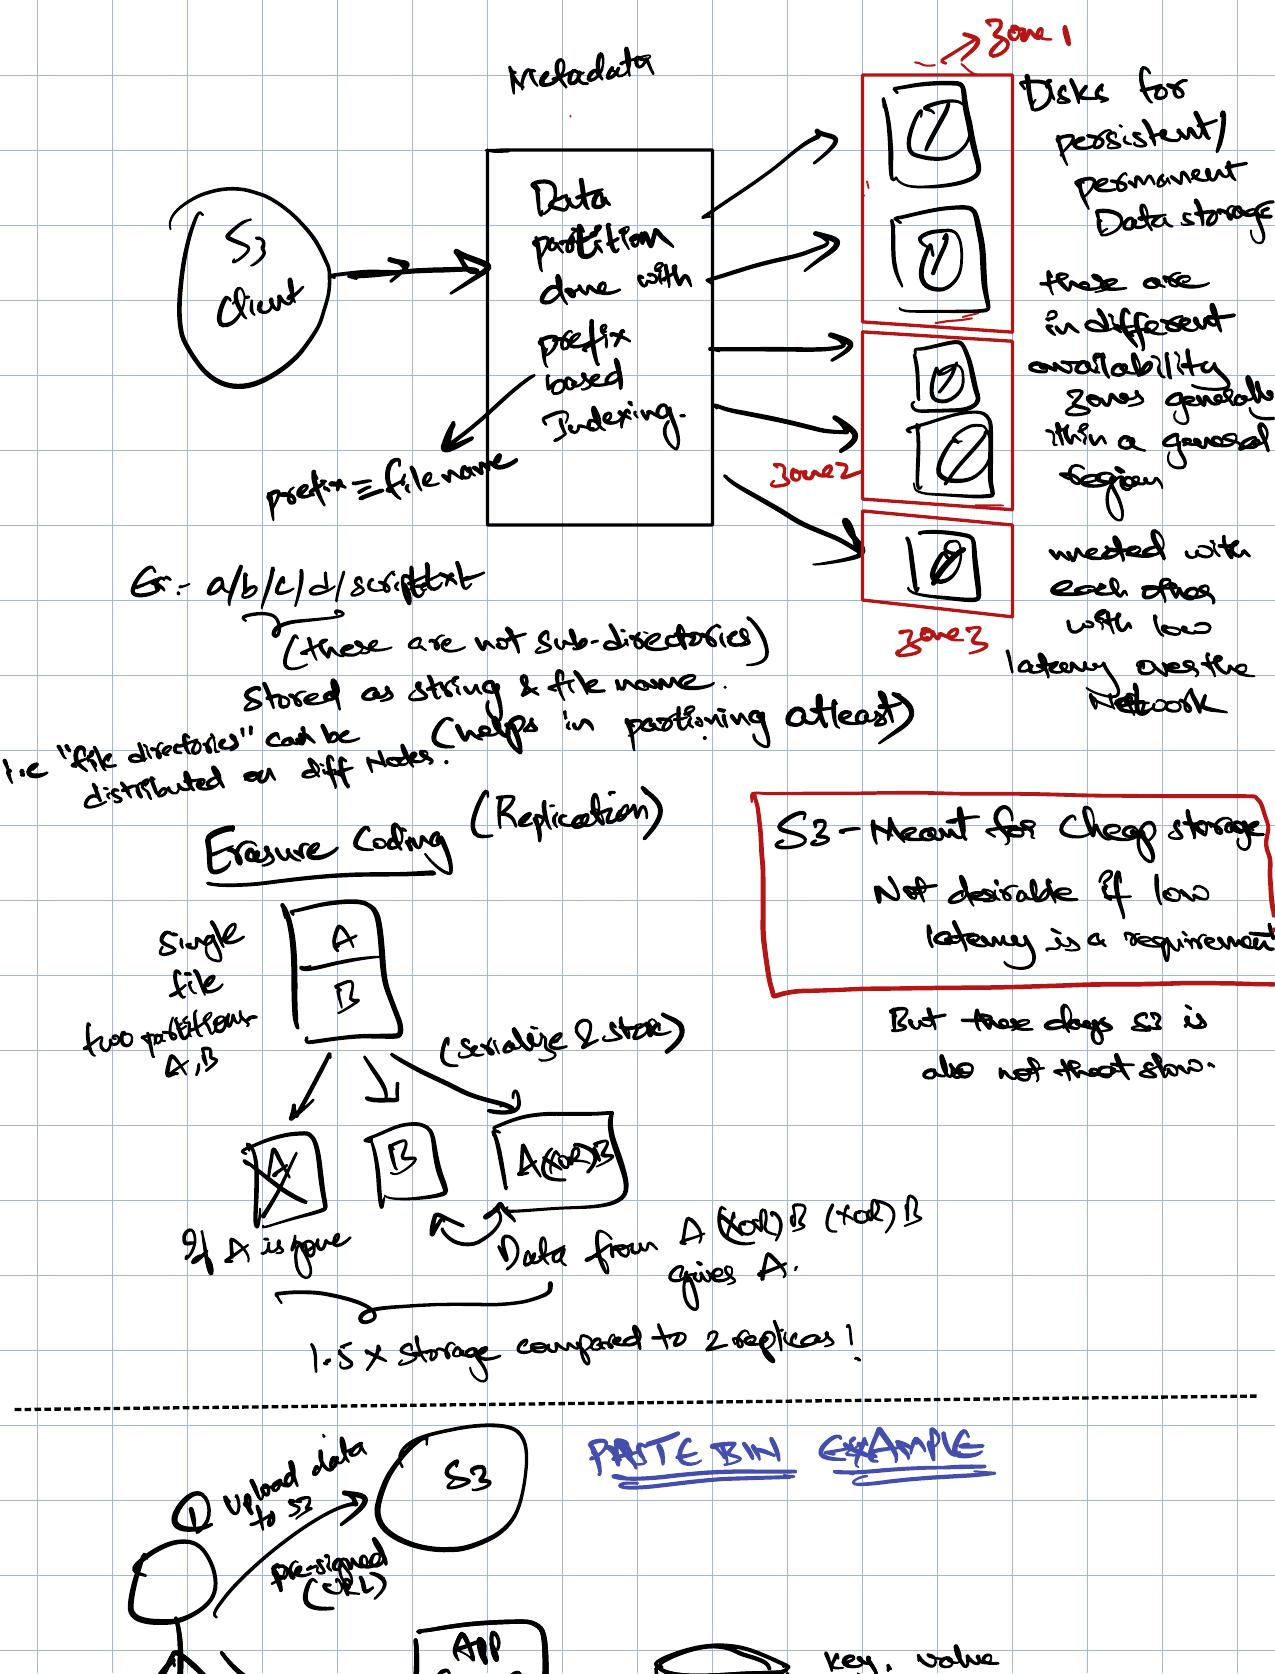 Metadata
Zone 1
S3
Client
Data
partition
done with
prefix
based
Indexing.
prefix ≡ file name
Disks for
persistent/
permanent
Data storage
these are
in different
availability
zones generally
within a general
region
Zone 2
Zone 3
nested with
each other
with low
latency over the
Network
Ex:- a/b/c/d/script.txt
(these are not sub-directories)
Stored as string & file name.
(helps in partioning atleast)
i.e "file directories" can be
distributed on diff Nodes.
Erasure Coding (Replication)
S3 - Meant for Cheap storage
Not desirable if low
latency is a requirement
But these days S3 is
also not that slow.
Single
file
two partitions
A, B
A
B
(serialize & store)
A
B
A(XOR)B
If A is gone
Data from A (XOR) B (XOR) B
gives A.
1.5 x Storage compared to 2 replicas!
PASTE BIN EXAMPLE
① Upload data
to S3
S3
pre-signed
(URL)
APP
key, value